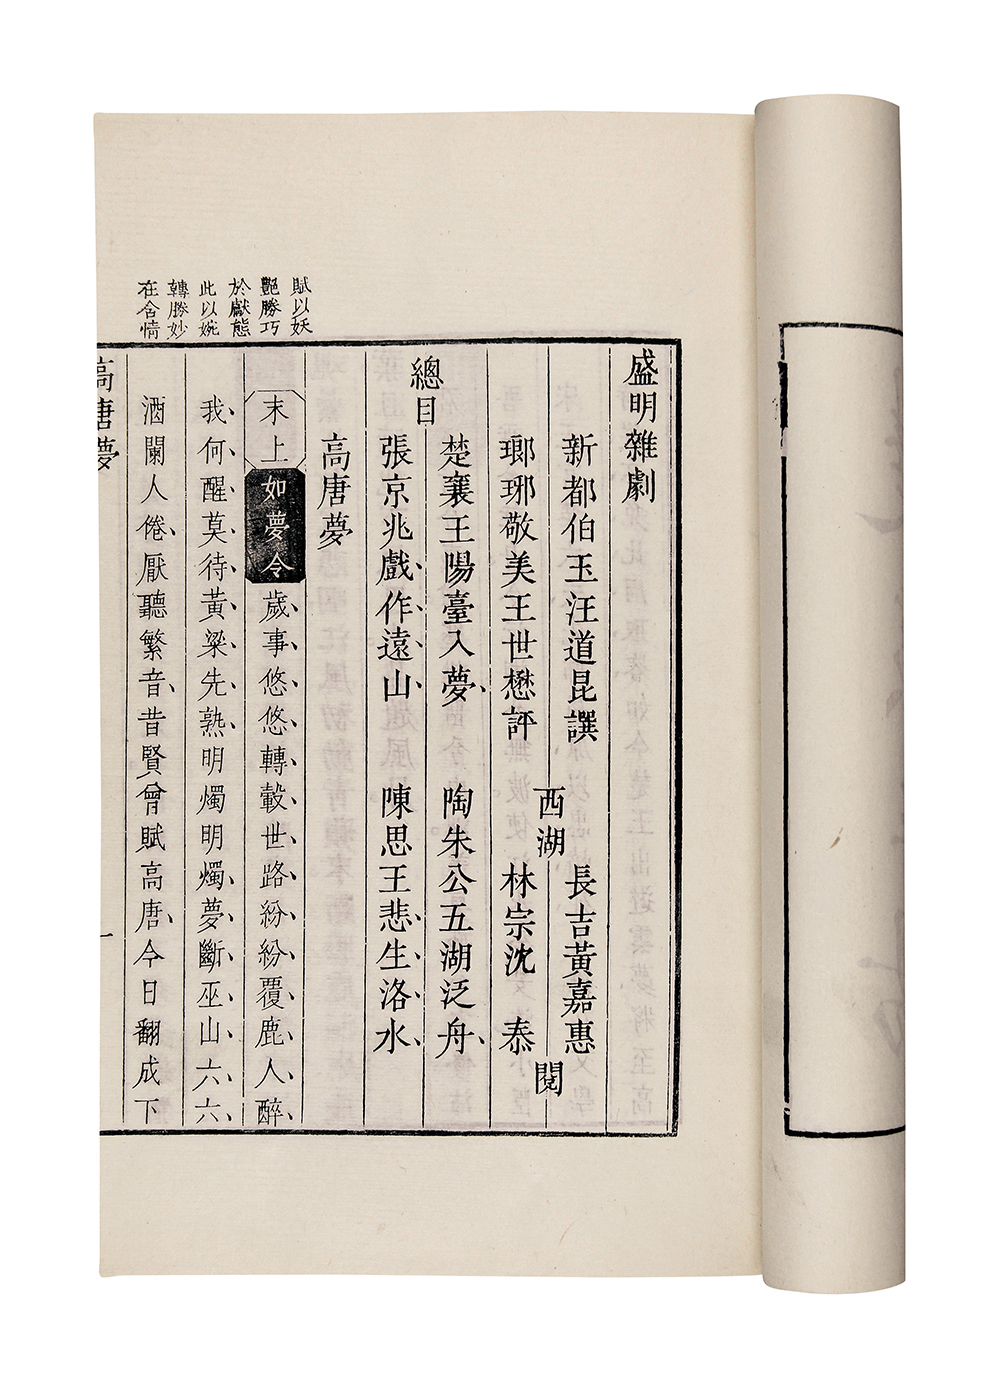 賦以妖
艷勝巧
於獻態
此以婉
轉勝妙
在含情
盛明雜劇
新都伯玉汪道昆譔
瑯琊敬美王世懋評
西湖
長吉黃嘉惠
林宗沈　泰
閱
總目
楚襄王陽臺入夢、　陶朱公五湖泛舟、
張京兆戲、作、遠、山、　陳思王悲、生、洛、水、
高唐夢
末上 如夢令 歲、事、悠、悠、轉、轂、世、路、紛、紛、覆、鹿、人、醉、
我、何、醒、莫、待、黃、粱、先、熟、明燭明燭、夢、斷、巫、山、六、六、
酒闌人倦、厭聽繁音、昔賢曾賦高唐、今日翻成下
高唐夢
一